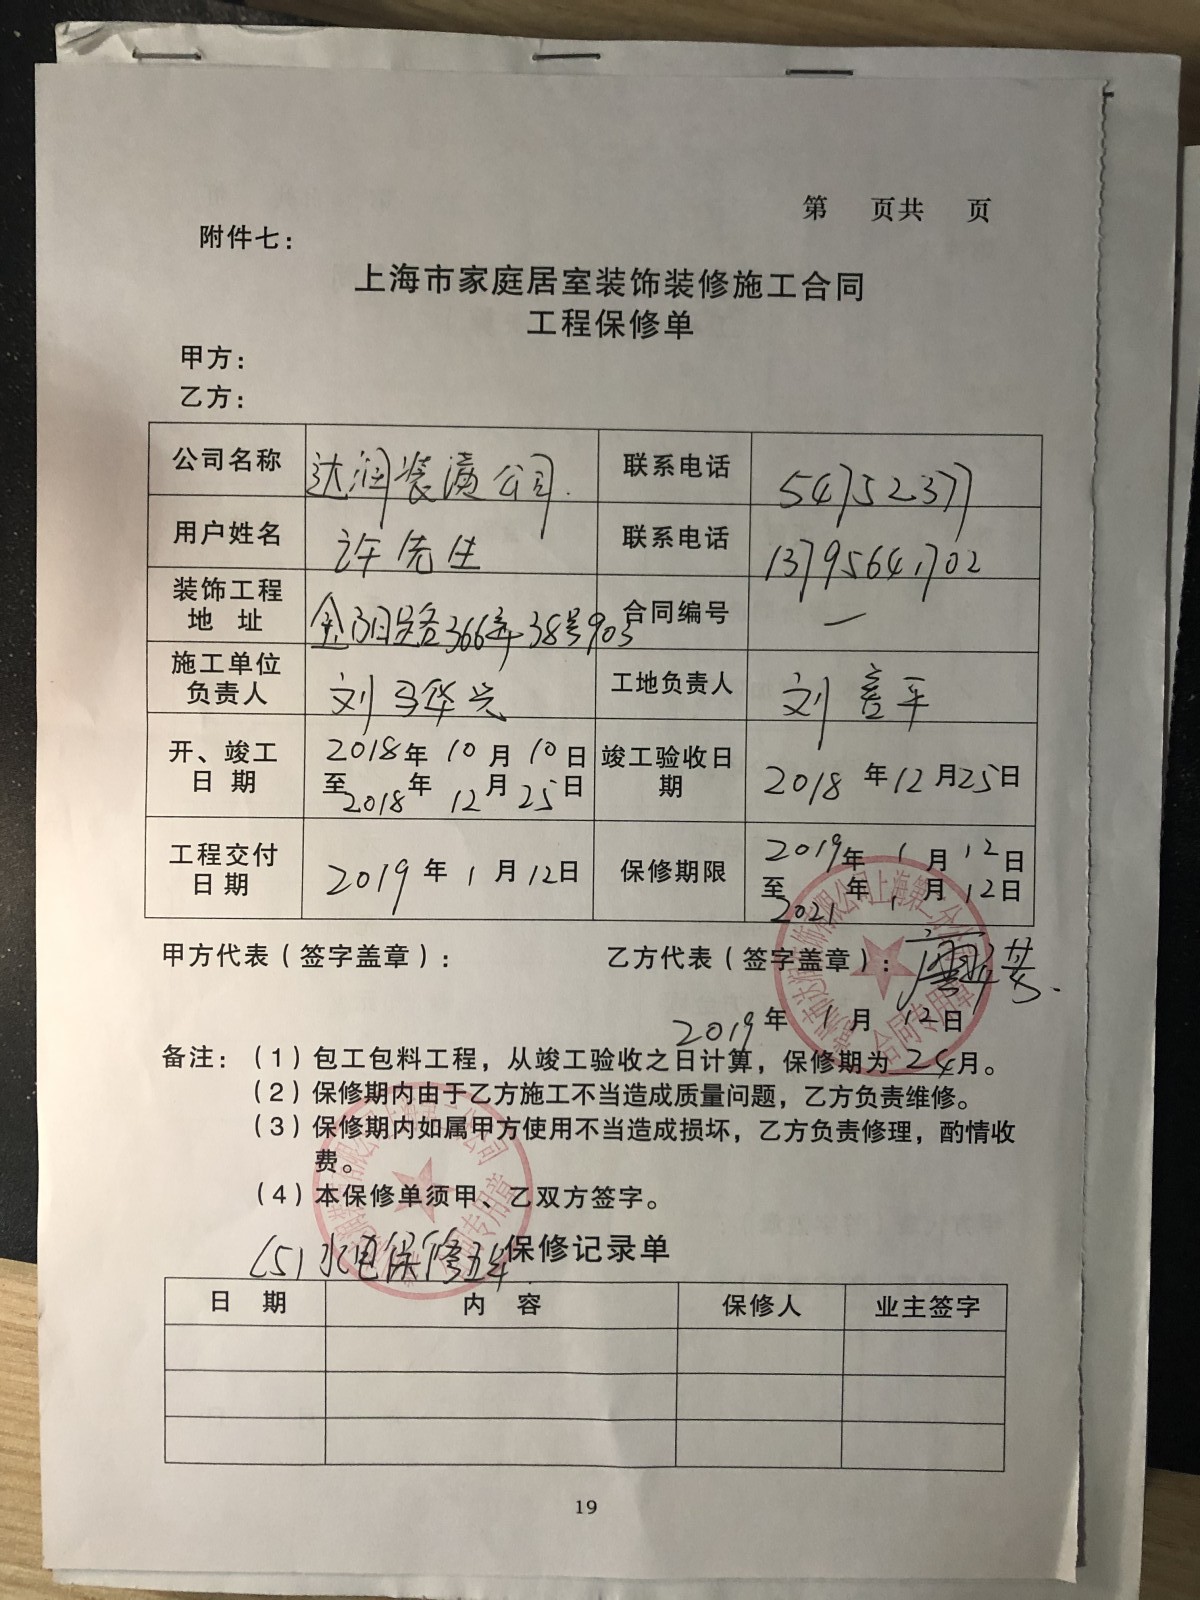 第 页共 页
附件七：
上海市家庭居室装饰装修施工合同
工程保修单
甲方：
乙方：
公司名称 达润装潢公司. 联系电话 54752377
用户姓名 许先生 联系电话 13795641702
装饰工程地址 金阳路366弄38号903 合同编号 —
施工单位负责人 刘 华兴 工地负责人 刘 平
开、竣工日期 2018年10月10日至2018年12月25日 竣工验收日期 2018年12月25日
工程交付日期 2019年1月12日 保修期限 2019年1月12日至2021年1月12日
甲方代表（签字盖章）： 乙方代表（签字盖章）：
2019年1月12日
合同专用章
备注：（1）包工包料工程，从竣工验收之日计算，保修期为24月。
（2）保修期内由于乙方施工不当造成质量问题，乙方负责维修。
（3）保修期内如属甲方使用不当造成损坏，乙方负责修理，酌情收
费。
（4）本保修单须甲、乙双方签字。
（5）水电保修五年
保修记录单
日 期 内 容 保修人 业主签字
19